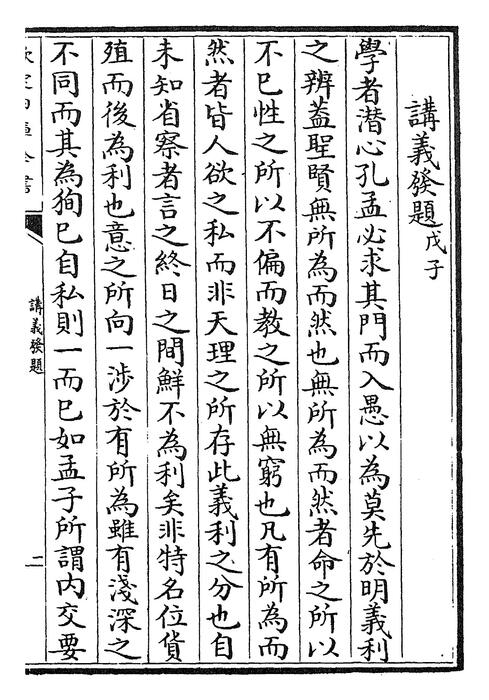 講義發題戊子
學者潛心孔孟必求其門而入愚以為莫先於明義利
之辨蓋聖賢無所為而然也無所為而然者命之所以
不已性之所以不偏而教之所以無窮也凡有所為而
然者皆人欲之私而非天理之所存此義利之分也自
未知省察者言之終日之間鮮不為利矣非特名位貨
殖而後為利也意之所向一涉於有所為雖有淺深之
不同而其為狥已自私則一而已如孟子所謂內交要
欽定四庫全書
講義發題
二